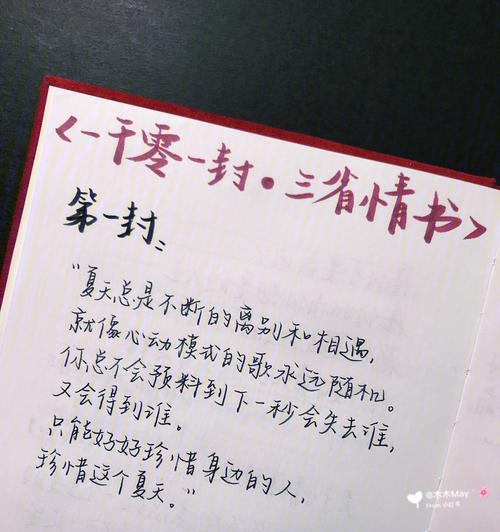 <一千零一封·三省情书>
第一封：
“夏天总是不断的离别和相遇，
就像心动模式的歌永远随机。
你总不会预料到下一秒会失去谁，
又会得到谁。
只能好好珍惜身边的人，
珍惜这个夏天。”
@木木May
From 小红书